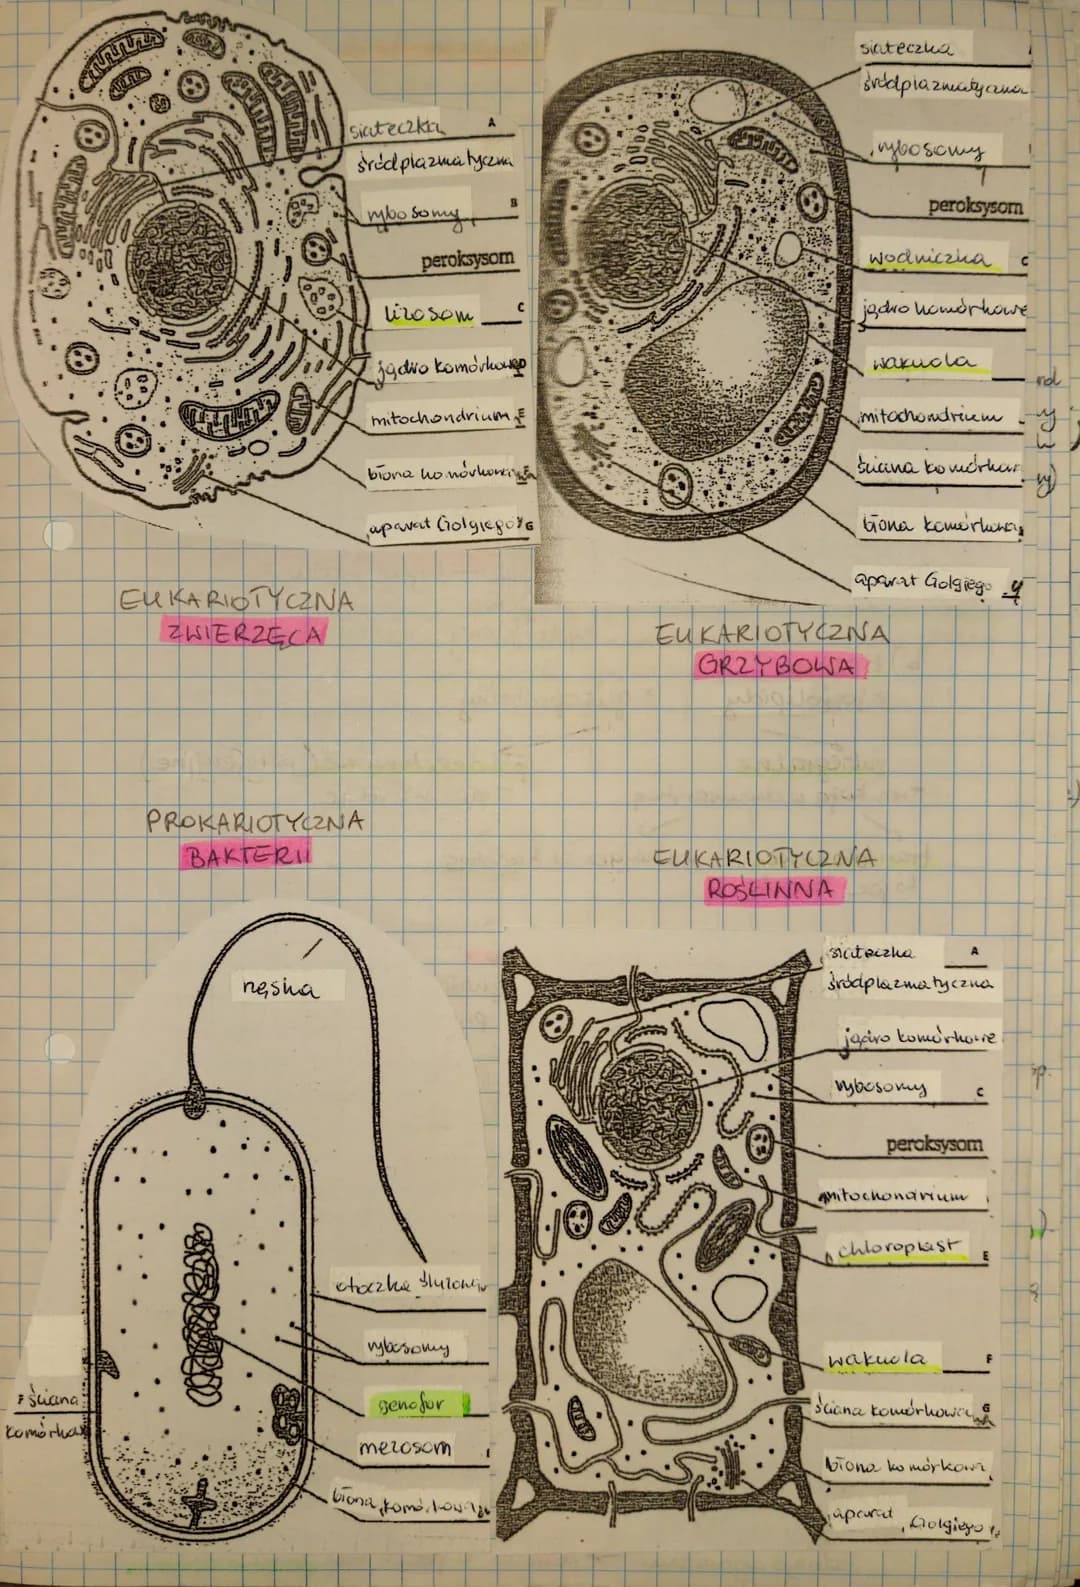 siateczka A
śródplazmatyczna
rybosomy B
peroksysom
lizosom C
jądro komórkowe D
mitochondrium E
błona komórkowa
aparat Golgiego G
EUKARIOTYCZNA
ZWIERZĘCA
siateczka
śródplazmatyczna
rybosomy
peroksysom
wodniczka C
jądro komórkowe
wakuola
mitochondrium
ściana komórkow
błona komórkowa
aparat Golgiego
EUKARIOTYCZNA
GRZYBOWA
PROKARIOTYCZNA
BAKTERII
rzęska
otoczka śluzowa
rybosomy
genofor
mezosom
błona komórkowa
F ściana
komórkow
EUKARIOTYCZNA
ROŚLINNA
siateczka A
śródplazmatyczna
jądro komórkowe
rybosomy C
peroksysom
mitochondrium
chloroplast E
wakuola F
ściana komórkowa G
błona komórkowa
aparat Golgiego